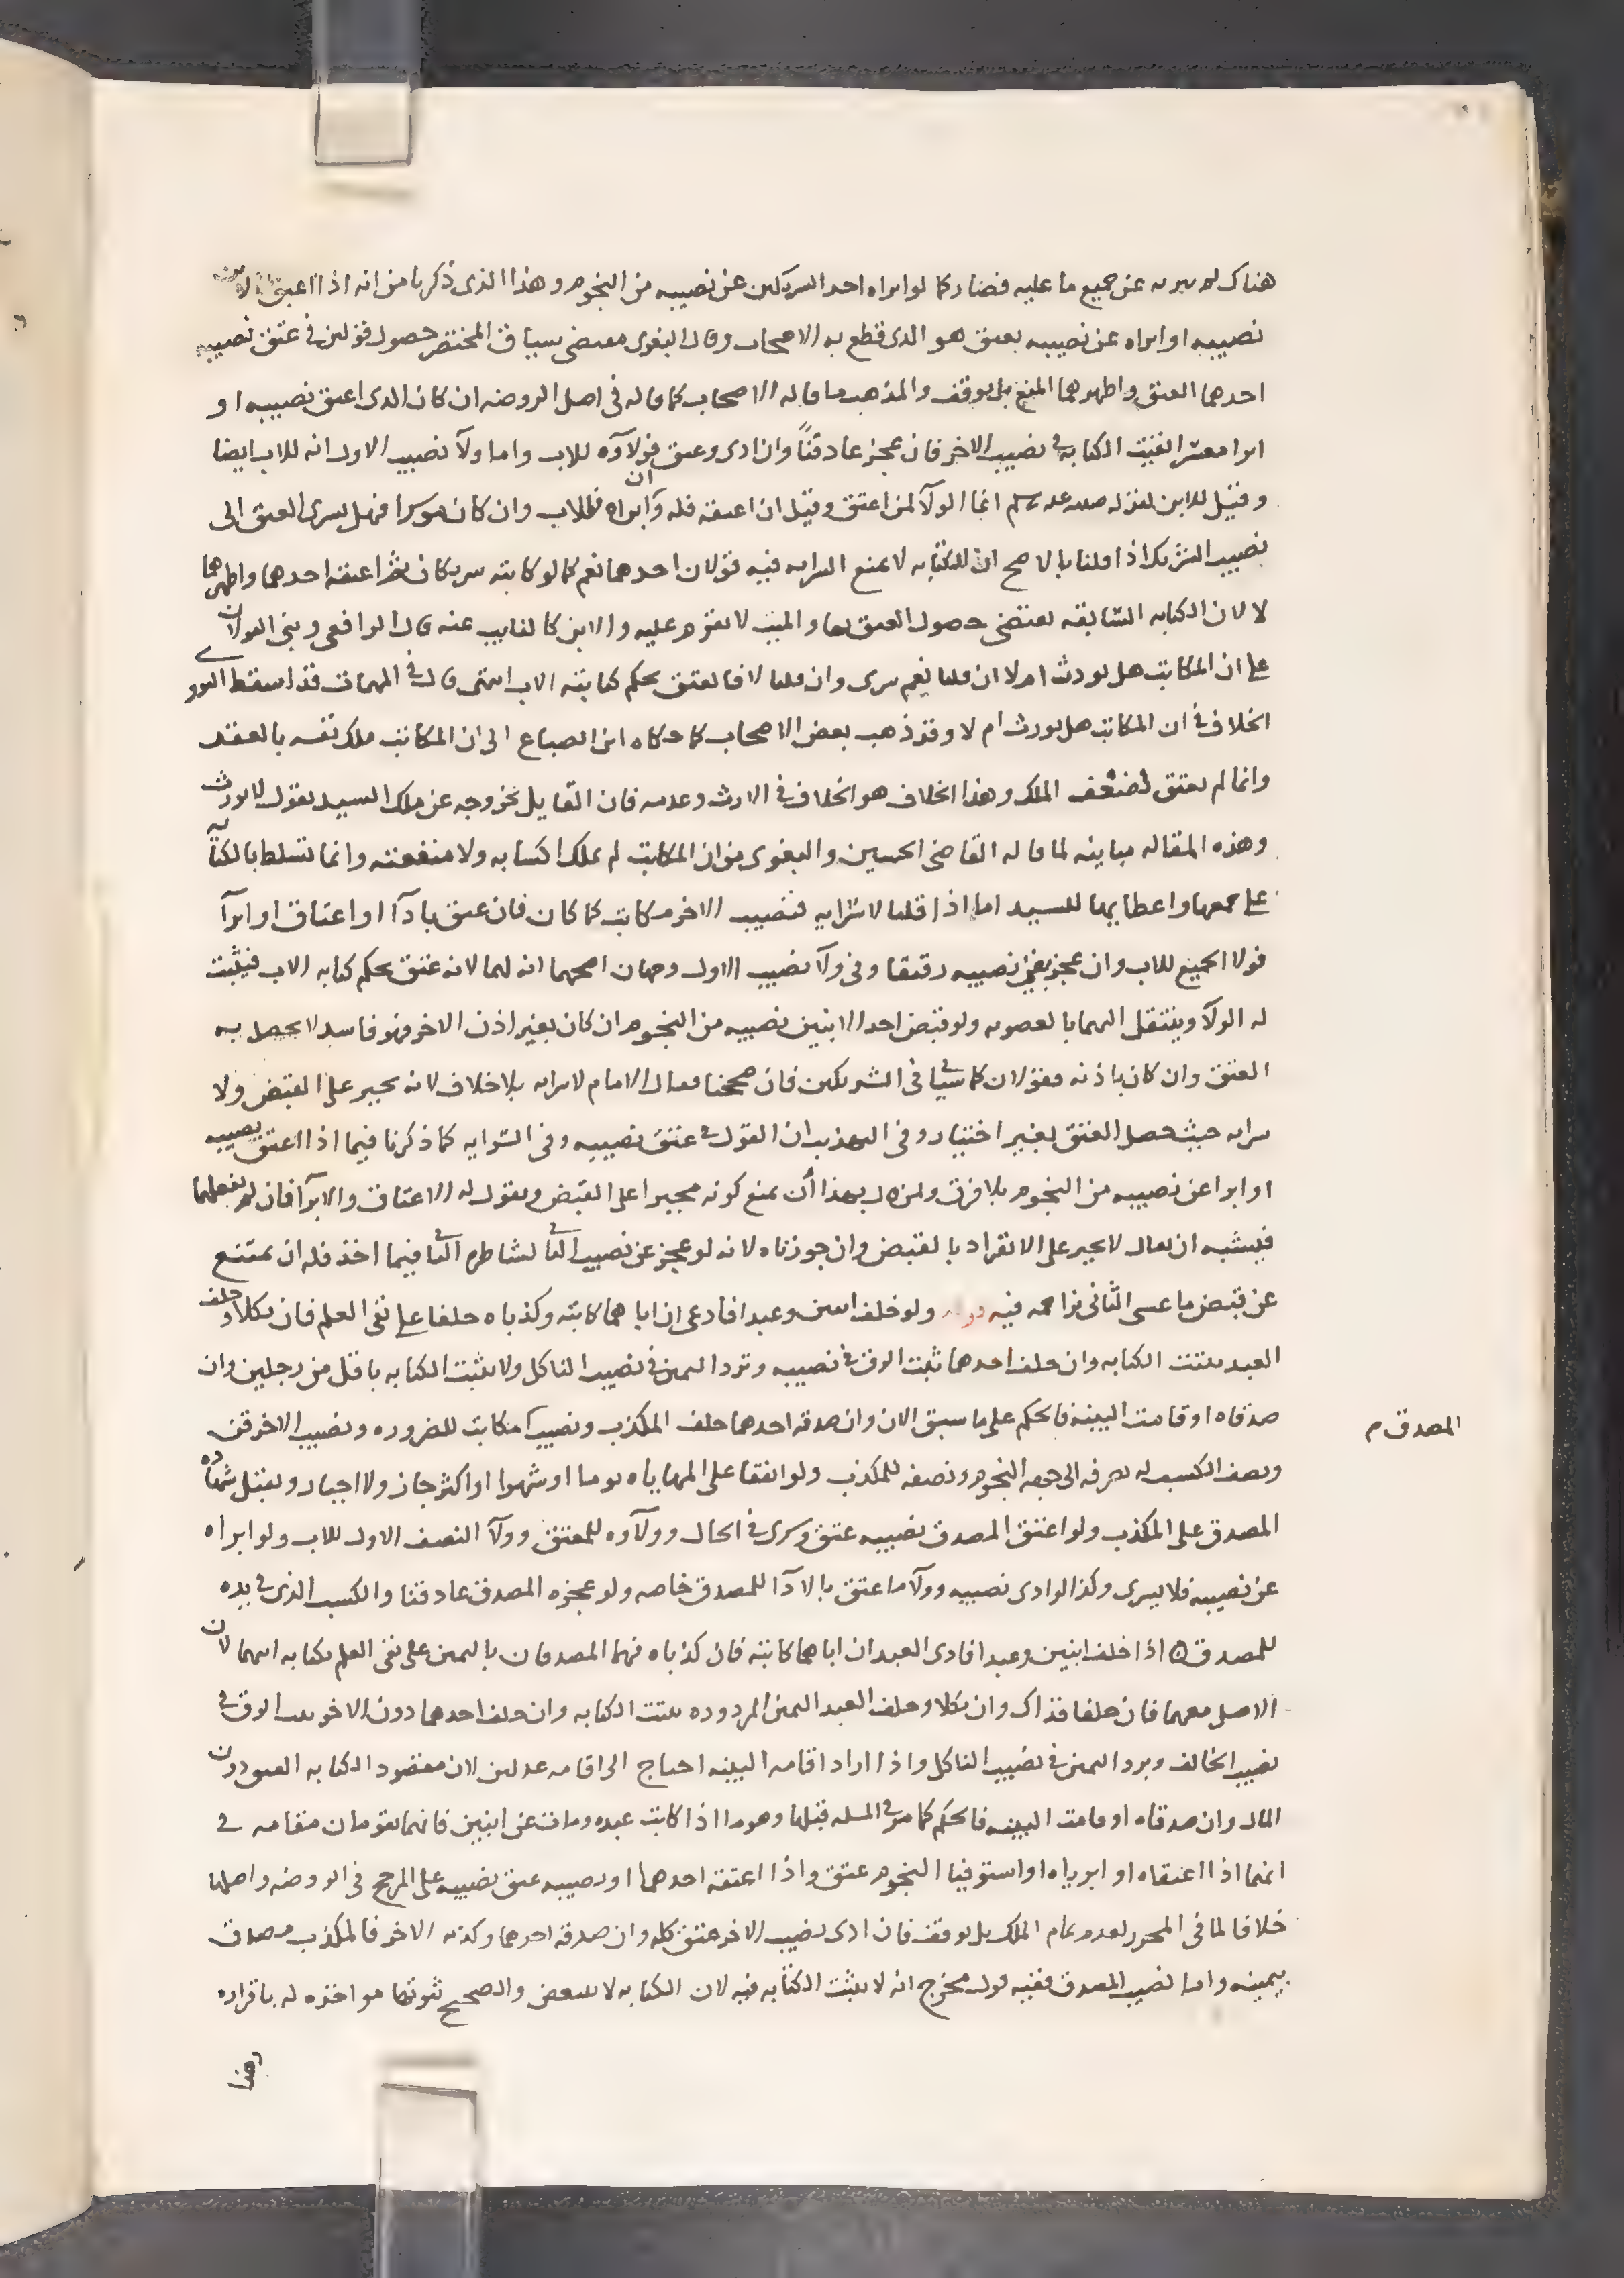 هناك لم يبريه عن جميع ما عليه فصار كما لو ابراه احد الشريكين عن نصيبه من النجوم وهذا الذي ذكرنا من انه اذا اعتق
نصيبه او ابراه عن نصيبه يعتق هو الذي قطع به الاصحاب وقال البغوي مقتضى سياق المختصر حصول قولين في عتق نصيبه
احدهما العتق واظهرهما المنع بل يوقف والمذهب ما قاله الاصحاب كما قاله في اصل الروضه ان كان الذي اعتق نصيبه او
ابرا معسرا بقيت الكتابه في نصيب الاخر فان عجز عاد قنًا وان ادى وعتق فولاوه للاب واما ولآ نصيب الاول انه للاب ايضا
وقيل للابن لقوله صلى الله عليه وسلم انما الولآ لمن اعتق وقيل ان اعتقه فله وان ابراه فللاب وان كان موسرا فهل يسري العتق الى
نصيب الشريك اذا قلنا بالاصح ان الكتابه لا تمنع السرايه فيه قولان احدهما نعم كما لو كاتبه شريكان ثم اعتقه احدهما واظهرهما
لا لان الكتابه السابقه تقتضي حصول العتق بها والميت لا يقوم عليه والابن كالنايب عنه قال الرافعي وبنى القولان
على ان المكاتب هل يورث ام لا ان قلنا نعم سرى وان قلنا لا فالعتق بحكم كتابته الاب انتهى قال في المهمات قد اسقط النووي
الخلاف في ان المكاتب هل يورث ام لا وقد ذهب بعض الاصحاب كما حكاه ابن الصباغ الى ان المكاتب ملك نفسه بالعقد
وانما لم يعتق لضعف الملك وهذا الخلاف هو الخلاف في الارث وعدمه فان القايل بخروجه عن ملك السيد يقول لا يورث
وهذه المقاله مباينه لما قاله القاضي الحسين والبغوي من ان المكاتب لم يملك اكسابه ولا منفعته وانما تسلط بالكتابه
على جمعها واعطايها للسيد اما اذا قلنا لا سرايه فنصيب الاخر مكاتب كما كان فان عتق بادآ او اعتاق او ابرآ
فولا الجميع للاب وان عجز بقي نصيبه رقيقا وفي ولآ نصيب الاول وجهان اصحهما انه لهما لانه عتق بحكم كتابه الاب فيثبت
له الولآ وينتقل اليهما بالعصوبه ولو قبض احد الابنين نصيبه من النجوم ان كان بغير اذن الاخر فهو فاسد لا يحصل به
العتق وان كان باذنه فقولان كما سياتي في الشريكين فان صححنا فقال الامام لا سرايه بلا خلاف لانه يجبر على القبض ولا
سرايه حيث حصل العتق بغير اختيار وفي التهذيب ان القول في عتق نصيبه وفي السرايه كما ذكرنا فيما اذا اعتق نصيبه
او ابرا عن نصيبه من النجوم بلا فرق ولمن قال بهذا أن يمنع كونه مجبرا على القبض ويقول له الاعتاق والابرآ فان لم يفعلهما
فيشبه ان يقال لا يجبر على الانفراد بالقبض وان جوزناه لانه لو عجز عن نصيب الثاني لشاطره الثاني فيما اخذ فله ان يمتنع
عن قبض ما عسى الثاني يزاحمه فيه ولو خلف ابنين وعبدا فادعى ان اباهما كاتبه وكذباه حلفا على نفي العلم فان نكلا وحلف
العبد ثبتت الكتابه وان حلف احدهما ثبت الرق في نصيبه وترد اليمين في نصيب الناكل ولا تثبت الكتابه باقل من رجلين وان
صدقاه او قامت البينه فالحكم على ما سبق الان وان صدقه احدهما حلف المكذب ونصيب المصدق مكاتب للضروره ونصيب الاخر قن
ونصف الكسب له يصرفه الى جهه النجوم ونصفه للمكذب ولو اتفقا على المهاياه يوما او شهرا او اكثر جاز ولا اجبار وتقبل شهاده
المصدق على المكذب ولو اعتق المصدق نصيبه عتق وسرى في الحال وولآوه للمعتق وولآ النصف الاول للاب ولو ابراه
عن نصيبه فلا يسرى وكذا لو ادى نصيبه وولآ ما عتق بالادآ للمصدق خاصه ولو عجزه المصدق عاد قنا والكسب الذي في يده
للمصدق اذا خلف ابنين وعبدا فادى العبد ان اباهما كاتبه فان كذباه فهما المصدقان باليمين على نفي العلم بكتابه ابيهما لان
الاصل معهما فان حلفا فذاك وان نكلا وحلف العبد اليمين المردوده ثبتت الكتابه وان حلف احدهما دون الاخر ثبت الرق في
نصيب الحالف وترد اليمين في نصيب الناكل واذا اراد اقامه البينه احتاج الى اقامه عدلين لان مقصود الكتابه العتق دون
المال وان صدقاه او قامت البينه فالحكم كما مر في المسله قبلها وهو ما اذا كاتب عبده ومات عن ابنين فانهما يقومان مقامه في
انهما اذا اعتقاه او ابرياه او استوفيا النجوم عتق واذا اعتقه احدهما او نصيبه عتق نصيبه على المرجح في الروضه واصلها
خلافا لما في المحرر لعدم تمام الملك بل يوقف فان ادى نصيب الاخر عتق كله وان صدقه احدهما وكذبه الاخر فالمكذب مصدق
بيمينه واما نصيب المصدق ففيه قول مخرج انه لا تثبت الكتابه فيه لان الكتابه لا تتبعض والصحيح ثبوتها مواخذه له باقراره
المصدق م